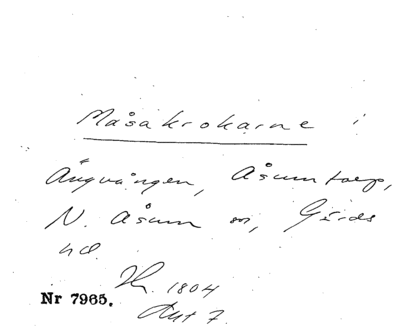 Måsakrokarne i
Ängvången, Åsumtorp,
N. Åsum sn, Gärds
hd.
1804
Akt 7.
Nr 7965.